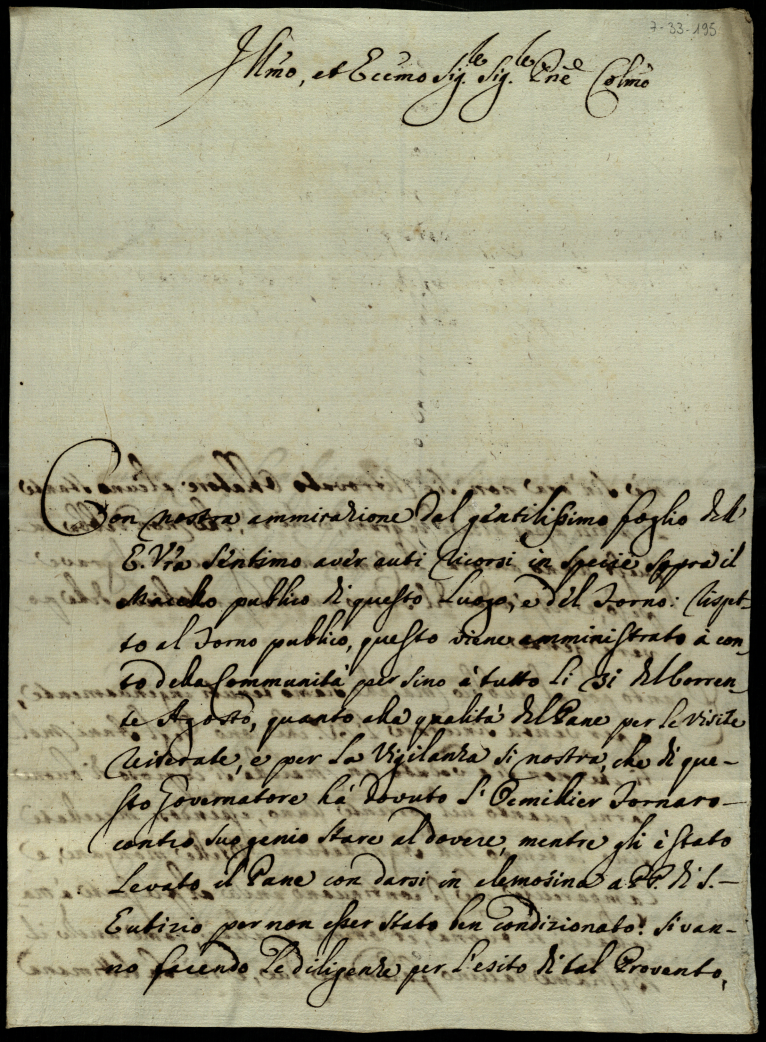 7-33-195
Illmo, et Eccmo Sig.le Sig.le Pne Colmo
Con nostra ammirazione dal gentilissimo foglio dell'
E. Vra sentimo aver auti ricorsi in specie sopra il
Macello publico di questo Luogo, e del Forno: Rispet-
to al Forno publico, questo viene amministrato à con-
to della Communità per sino à tutto li 31 del Corren-
te Agosto, quanto alla qualità del Pane per le visite
reiterate, e per la Vigilanza si nostra, che di que-
sto Governatore hà dovuto l' Fornaro
contro suo genio stare al dovere, mentre gli è stato
Levato il Pane con darsi in elemosina a PP. di S.
Eutizio per non esser stato ben condizionato: Si van-
no facendo le diligenze per l'esito di tal Provento,